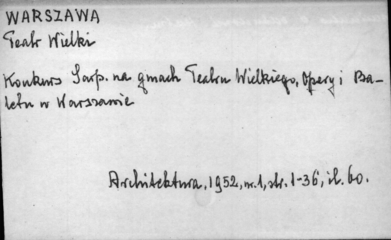 WARSZAWA
Teatr Wielki
Konkurs Sarp. na gmach Teatru Wielkiego, Opery i Ba-
letu w Warszawie
Architektura, 1952, nr. 1, str. 1-36, il. 60.